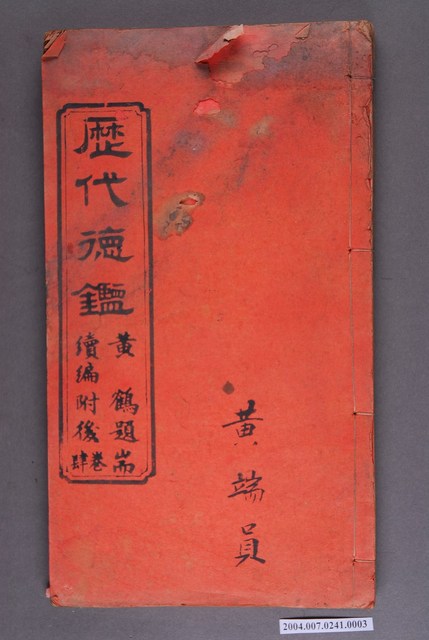 歷代德鑑
黃鶴題耑
續編附後
卷肆
黃端員
2004.007.0241.0003